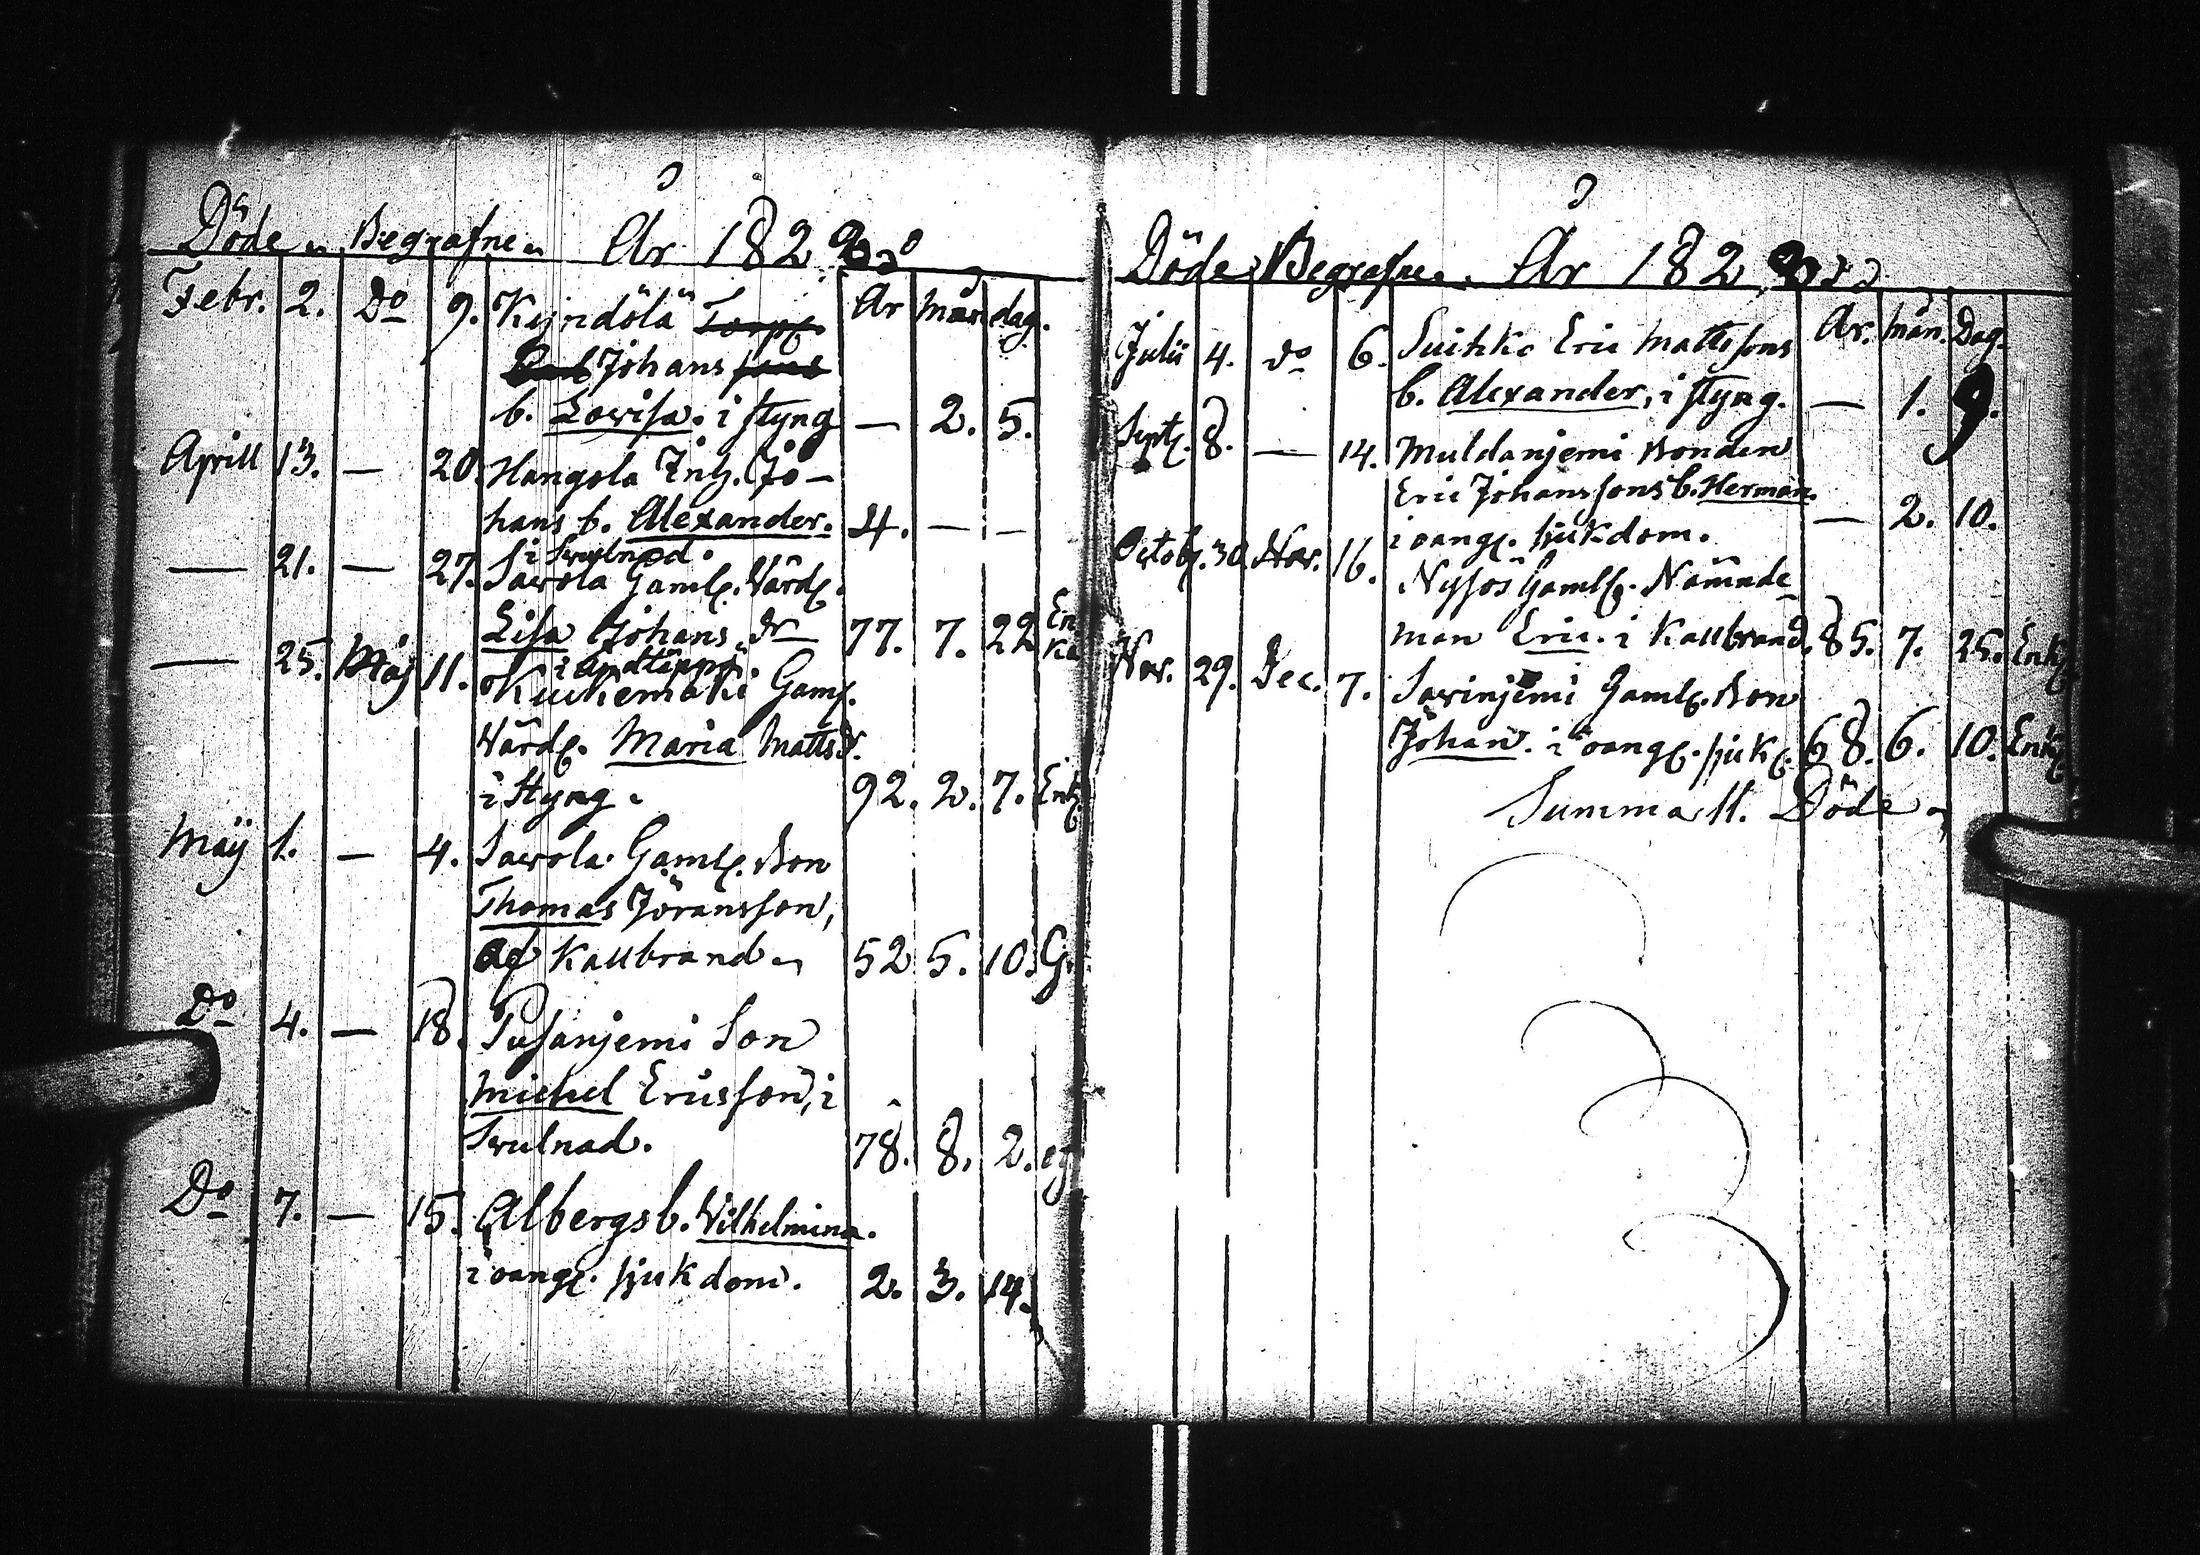 Döde Begrafne År 182
År mån. dag.
Febr. 2. Do 9. Kyndölä Torp.
Johans
b. Lovisa. i styng — 2. 5.
Aprill 13. — 20. Hangsla Inh. Jo-
hans b. Alexander. 4. — —
i Swulnad.
— 21. — 27. Savola Gaml. Värd.
Lisa Johans dr 77. 7. 22 En
ka
i Andtäppa.
— 25. Maij 11. Kuckemäki Gaml.
Värd. Maria Mattsd.
i Styng. 92. 2. 7. Enk.
Maij 1. — 4. Savola Gaml. Bon
Thomas Jöransson,
af Kallbrand 52 5. 10. G.
Do 4. — 18. Pusanjemi Son
Michel Ericsson, i
Swulnad. 78. 8. 2.
Do 7. — 15. Albergs b. Wilhelmina.
i oang. sjukdom. 2. 3. 14.
Döde Begrafne År 182
År. mån. Dag.
Julii 4. do 6. Suikko Eric Matts sons
b. Alexander, i styng. — 1. 9.
Sept. 8. — 14. Muldanjemi Bonden
Eric Johanssons b. Herman.
i oang. sjukdom. — 2. 10.
Octob. 30. Nov. 16. Nysos Gaml. Nämnde-
man Eric. i Kallbrand. 85. 7. 25. Enk.
Nov. 29. Dec. 7. Savinjemi Gaml. Bon
Johan. i oang. sjuk. 68. 6. 10. Enk.
Summa 11. Döde